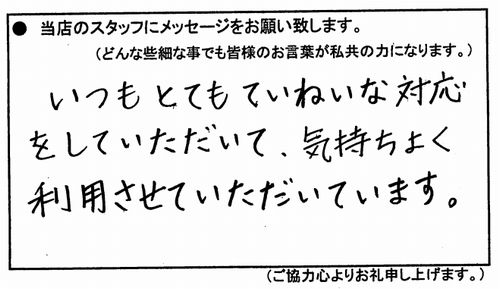 ● 当店のスタッフにメッセージをお願い致します。
（どんな些細な事でも皆様のお言葉が私共の力になります。）
いつもとてもていねいな対応
をしていただいて、気持ちよく
利用させていただいています。
（ご協力心よりお礼申し上げます。）